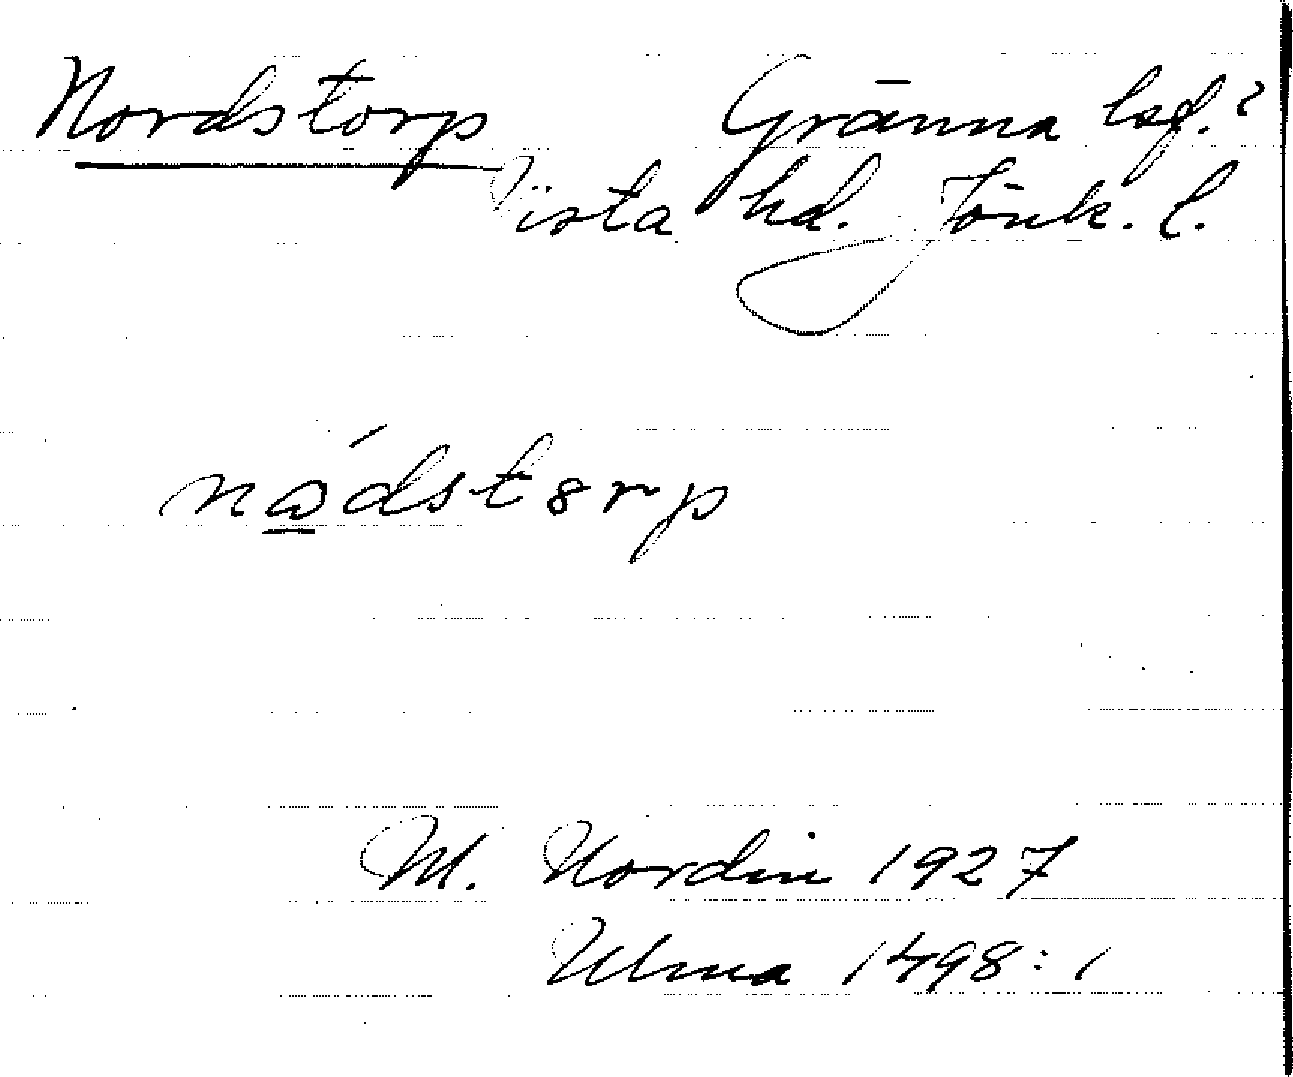 Nordstorp Gränna lsf.?
Vista hd. Jönk. l.
nɷ̲́dstɤrp
M. Nordin 1927
Ulma 1498:1